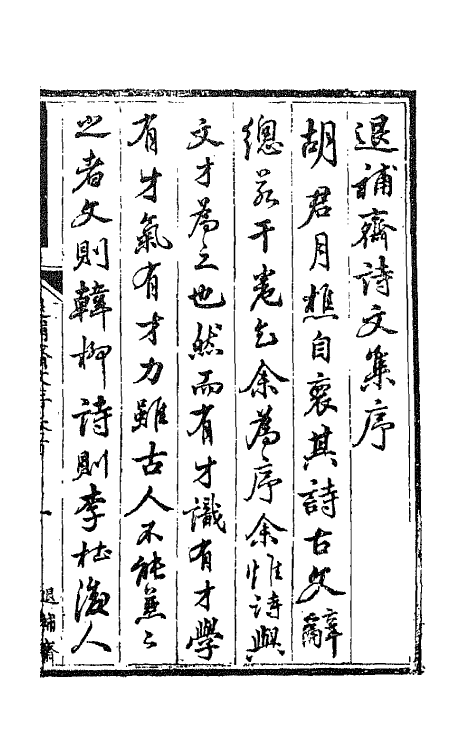 退補齋詩文集序
胡君月樵自裒其詩古文辭
總若干卷乞余為序余惟詩與
文才為之也然而有才識有才學
有才氣有才力雖古人不能兼之
之者文則韓柳詩則李杜後人
退補齋